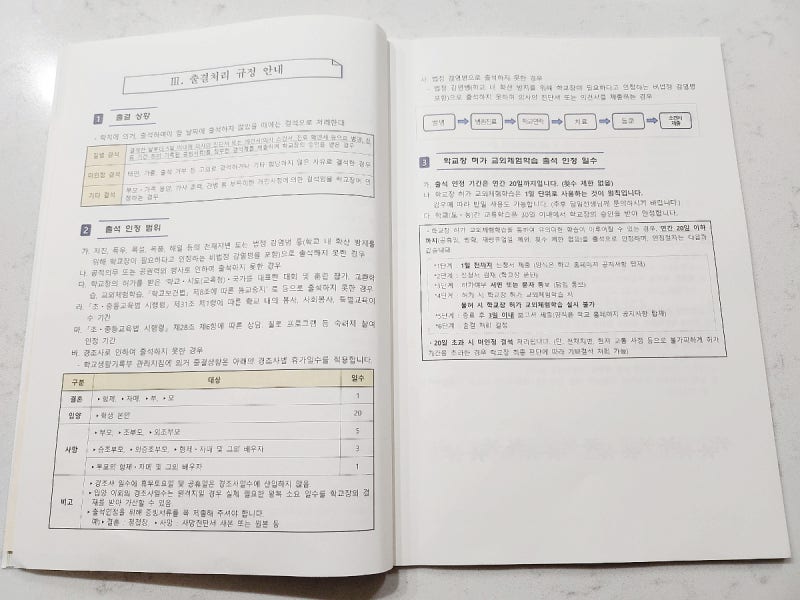 Ⅲ. 출결처리 규정 안내
1 출결 상황
- 학칙에 의거, 출석하여야 할 날짜에 출석하지 않았을 때에는 결석으로 처리한다.
질병 결석
미인정 결석 태만, 가출, 출석 거부 등 고의로 결석하거나 기타 합당하지 않은 사유로 결석한 경우
기타 결석 부모·가족 봉양, 가사 조력, 간병 등 부득이한 개인사정에 의한 결석임을 학교장이 인정하는 경우
2 출석 인정 범위
가. 지진, 폭우, 폭설, 폭풍, 해일 등의 천재지변 또는 법정 감염병 등(학교 내 확산 방지를
위해 학교장이 필요하다고 인정하는 비법정 감염병을 포함)으로 출석하지 못한 경우
나. 공적의무 또는 공권력의 행사로 인하여 출석하지 못한 경우
다. 학교장의 허가를 받은 '학교·시도(교육청)·국가를 대표한 대회 및 훈련 참가, 교환학
습, 교외체험학습, 「학교보건법」 제8조에 따른 등교중지' 로 등으로 출석하지 못한 경우
라. 「초·중등교육법 시행령」 제31조 제1항에 따른 학교 내의 봉사, 사회봉사, 특별교육이
수 기간
마. 「초·중등교육법 시행령」 제28조 제6항에 따른 상담, 진로 프로그램 등 숙려제 참여
인정 기간
바. 경조사로 인하여 출석하지 못한 경우
- 학교생활기록부 관리지침에 의거 출결상황은 아래의 경조사별 휴가일수를 적용합니다.
구분 대상 일수
결혼 • 형제, • 자매, • 부, • 모 1
입양 • 학생 본인 20
사망 • 부모, • 조부모, • 외조부모 5
• 증조부모, • 외증조부모, • 형제·자매 및 그의 배우자 3
• 부모의 형제·자매 및 그의 배우자 1
비고 • 경조사 일수에 휴무토요일 및 공휴일은 경조사일수에 산입하지 않음
• 입양 이외의 경조사일수는 원격지일 경우 실제 필요한 왕복 소요 일수를 학교장의 결
재를 받아 가산할 수 있음
• 출석인정을 위해 증빙서류를 꼭 제출해 주셔야 합니다.
예) • 결혼 : 청첩장, • 사망 : 사망진단서 사본 또는 원본 등
사. 법정 감염병으로 출석하지 못한 경우
- 법정 감염병(학교 내 확산 방지를 위해 학교장이 필요하다고 인정하는 비법정 감염병
포함)으로 출석하지 못하여 의사의 진단서 또는 의견서를 제출하는 경우
발병 병원진료 학교연락 치료 등교
제출
3 학교장 허가 교외체험학습 출석 인정 일수
가. 출석 인정 기간은 연간 20일까지입니다. (횟수 제한 없음)
나. 학교장 허가 교외체험학습은 1일 단위로 사용하는 것이 원칙입니다.
경우에 따라 반일 사용도 가능합니다. (추후 담임선생님께 문의하시기 바랍니다.)
다. 학교(도·농)간 교류학습은 30일 이내에서 학교장의 승인을 받아 인정합니다.
- 학교장 허가 교외체험학습을 통하여 유의미한 학습이 이루어질 수 있는 경우, 연간 20일 이하
까지(공휴일, 방학, 재량휴업일 제외, 횟수 제한 없음)을 출석으로 인정하며, 인정절차는 다음과
같습니다.
*1단계 : 1일 전까지 신청서 제출 (양식은 학교 홈페이지 공지사항 탑재)
*2단계 : 신청서 결재 (학교장 판단)
*3단계 : 허가여부 서면 또는 문자 통보 (담임 통보)
*4단계 : 허가 시 학교장 허가 교외체험학습 실시
불허 시 학교장 허가 교외체험학습 실시 불가
*5단계 : 종료 후 3일 이내 보고서 제출(양식은 학교 홈페이지 공지사항 탑재)
*6단계 : 출결 처리 결정
- 20일 초과 시 미인정 결석 처리됩니다. (단, 천재지변, 현지 교통 사정 등으로 불가피하게 허가
기간을 초과한 경우 학교장 최종 판단에 따라 기타결석 처리 가능)